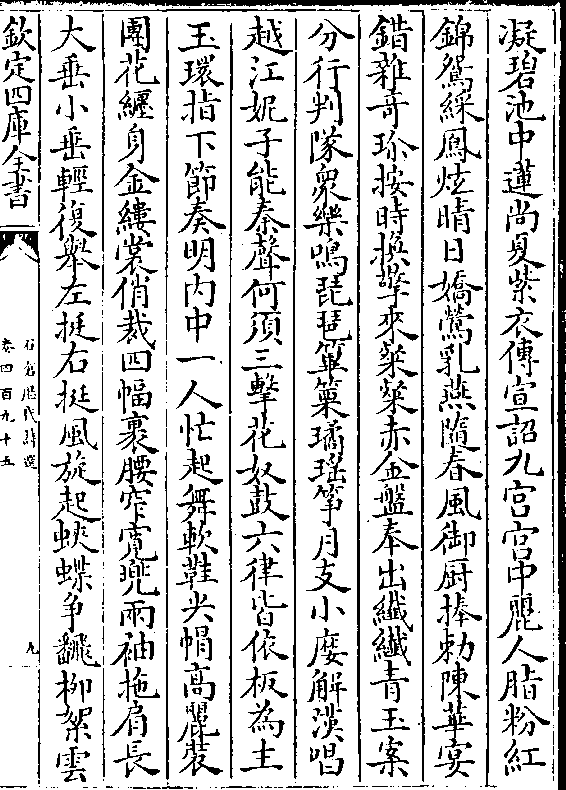 凝碧池中蓮尚夏紫衣傳宣詔九宫宫中麗人脂粉紅
錦鴛綵鳳炫晴日嬌鶯乳燕隨春風御厨捧勅陳華宴
錯雜竒珍按時換擎來粲粲赤金盤奉出纖纖青玉案
分行判隊衆樂鳴琵琶篳篥璚瑶筝月支小麽解漢唱
越江妮子能秦聲何須三擊花奴鼓六律皆依板為主
玉環指下節奏明内中一人忙起舞軟鞋尖帽高麗裝
團花纏身金縷裳俏裁四幅裹腰窄寛兜兩袖拖肩長
大垂小垂輕復舉左挺右挺風旋起蛺蝶争飜柳絮雲
欽定四庫全書
石倉歷代詩選
卷四百九十五
九